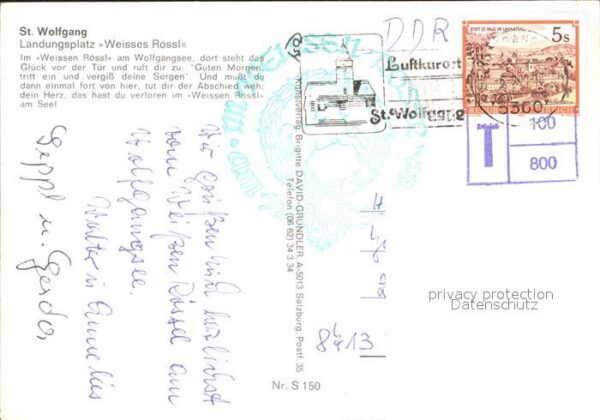 St. Wolfgang
Landungsplatz »Weisses Rössl«
Im »Weissen Rössl« am Wolfgangsee, dort steht das
Glück vor der Tür und ruft dir zu: "Guten Morgen,
tritt ein und vergiß deine Sorgen". Und mußt du
dann einmal fort von hier, tut dir der Abschied weh,
dein Herz, das hast du verloren im »Weissen Rössl«
am See!
DDR
Luftkurort
St. Wolfgang
STIFT ST. PAUL IM LAVANTTAL
5s
5360
T
100
800
Wir grüßen Euch herzlichst
vom Weißen Rössel am
Wolfgangsee.
Walter u. Annelies
Seppl u. Gerda
Kunstverlag Brigitte DAVID-GRÜNDLER, A-5013 Salzburg, Postf. 35
Telefon (06 62) 34 3 34
8413
Nr. S 150
privacy protection
Datenschutz